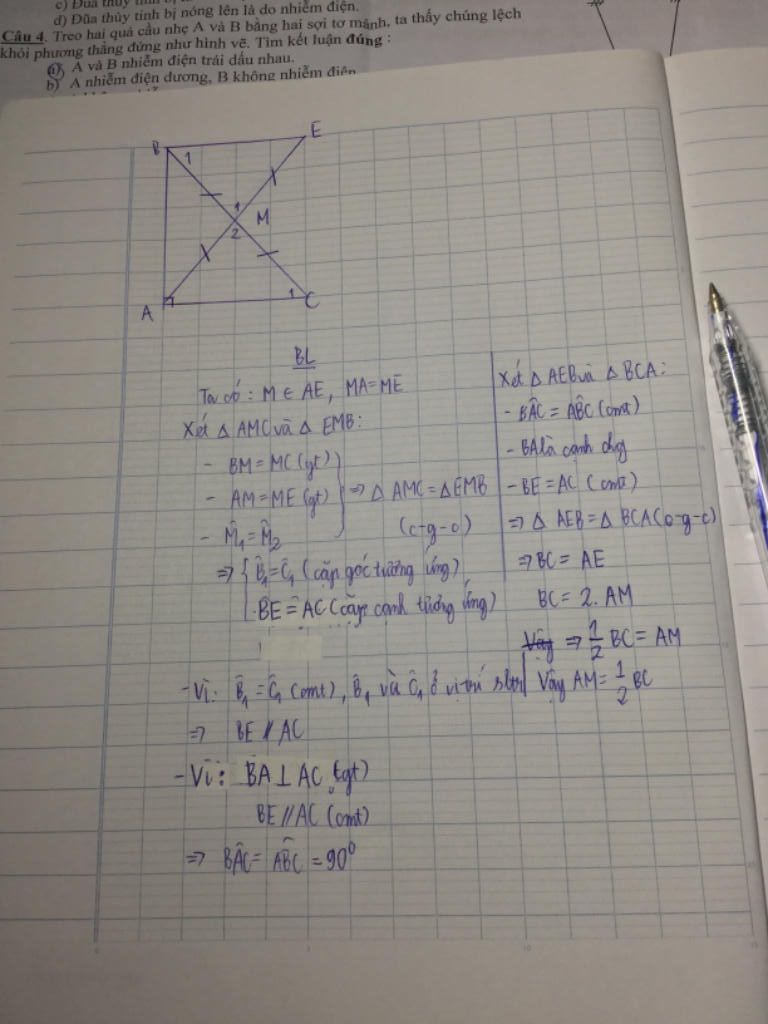 c) Đũa thủy tinh bị
d) Đũa thủy tinh bị nóng lên là do nhiễm điện.
Câu 4. Treo hai quả cầu nhẹ A và B bằng hai sợi tơ mảnh, ta thấy chúng lệch
khỏi phương thẳng đứng như hình vẽ. Tìm kết luận đúng :
a) A và B nhiễm điện trái dấu nhau.
b) A nhiễm điện dương, B không nhiễm điện
B
E
1
1
M
2
A
1
C
BL
Ta có : M ∈ AE, MA = ME
Xét Δ AMC và Δ EMB:
- BM = MC (gt)
- AM = ME (gt)
- M̂1 = M̂2
=> Δ AMC = Δ EMB
(c-g-c)
=> { B̂1 = Ĉ1 (cặp góc tương ứng)
BE = AC (cặp cạnh tương ứng)
- Vì: B̂1 = Ĉ1 (cmt), B̂1 và Ĉ1 ở vị trí sltr
=> BE // AC
- Vì: BA ⊥ AC (gt)
BE // AC (cmt)
=> BÂC = ABC = 90⁰
Xét Δ AEB và Δ BCA:
- BÂC = AB̂C (cmt)
- BA là cạnh chg
- BE = AC (cmt)
=> Δ AEB = Δ BCA (c-g-c)
=> BC = AE
BC = 2. AM
Vậy => 1/2 BC = AM
Vậy AM = 1/2 BC